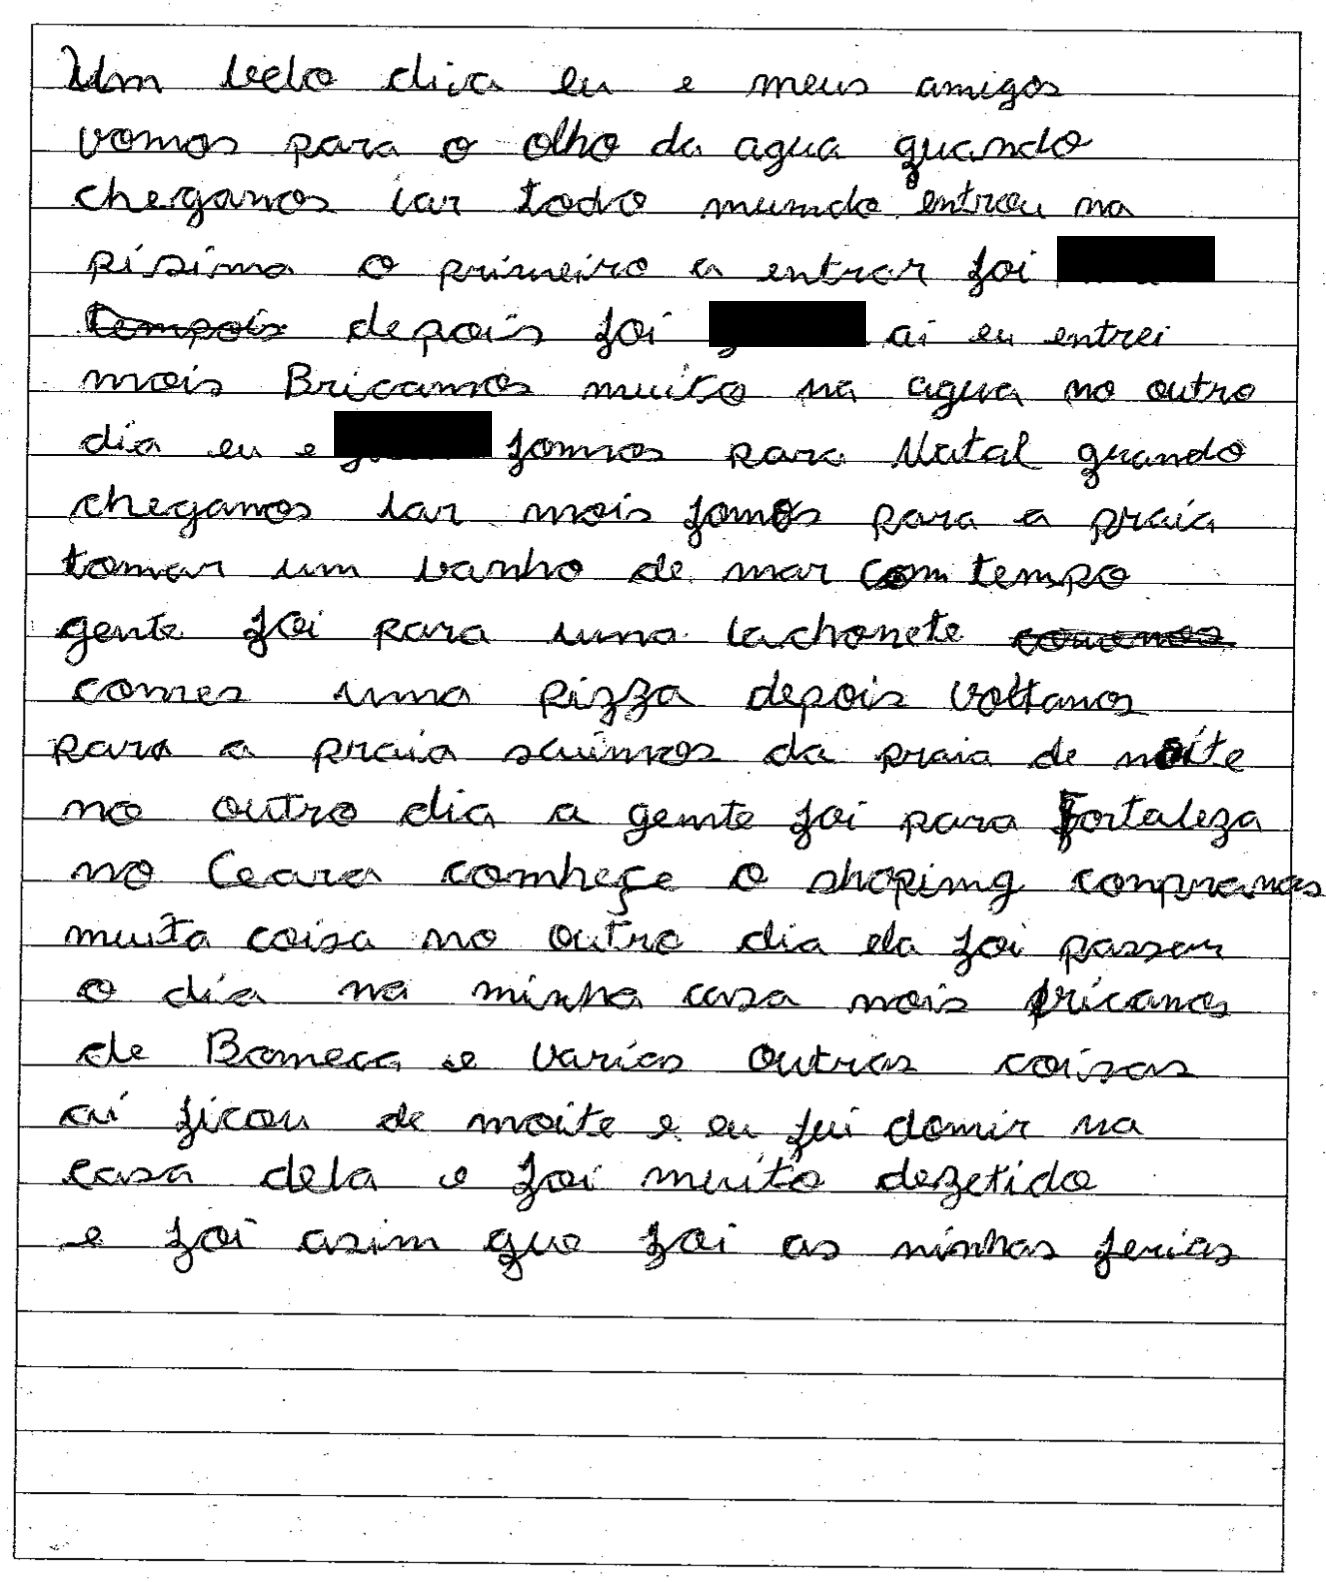 Um belo dia eu e meus amigos
vomos para o olho da agua quando
chegamos lar todo mundo entrou na
pisima o primeiro a entrar foi
tempois depois foi ai eu entrei
mois Bricamos muito na agua no outro
dia eu e fomos para Natal quando
chegamos lar mois fomos para a praia
tomar um banho de mar com tempo
gente foi para uma lachonete comemos
comes uma pizza depois voltamos
para a praia saimos da praia de noite
no outro dia a gente foi para Fortaleza
no Ceara comheçe o shoping conpramos
muita coisa no outro dia ela foi passar
o dia na minha casa nois bricamos
de Boneca e varias outras coisas
ai ficou de noite e eu fui domir na
casa dela e foi muito dezetido
e foi asim que foi as minhas ferias